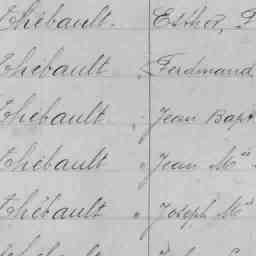 Thébault Esther,
Thébault Ferdinand
Thébault Jean Bapt
Thébault " Jean M''
Thébault " Joseph M''